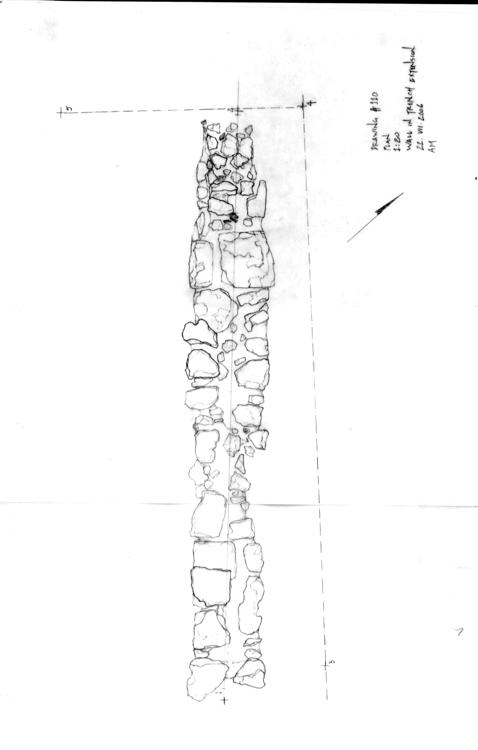 DRAWING # 110
PLAN
1:20
WALL IN TRENCH EXTENSION
22. VII. 2006
AM
5
4
4
3